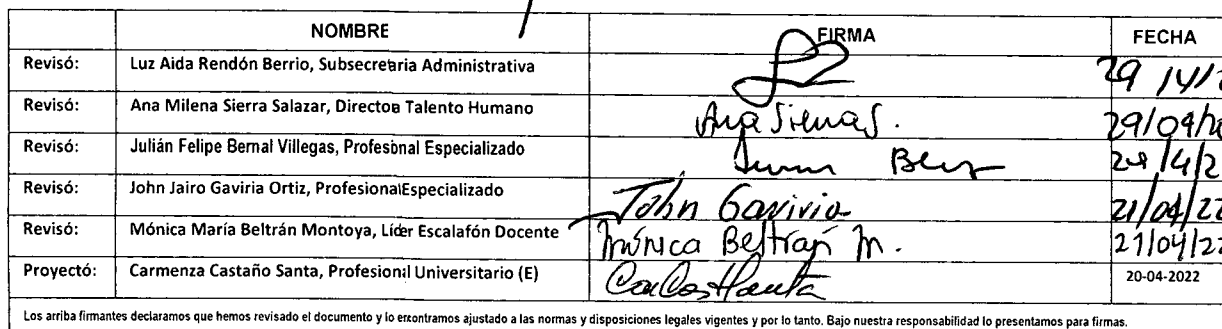 NOMBRE FIRMA FECHA
Revisó: Luz Aida Rendón Berrio, Subsecretaria Administrativa
Revisó: Ana Milena Sierra Salazar, Directora Talento Humano Ana Sierra S. 29/04/
Revisó: Julián Felipe Bernal Villegas, Profesional Especializado
Revisó: John Jairo Gaviria Ortiz, Profesional Especializado John Gaviria 21/04/22
Revisó: Mónica María Beltrán Montoya, Líder Escalafón Docente Mónica Beltrán M. 21/04/22
Proyectó: Carmenza Castaño Santa, Profesional Universitario (E) 20-04-2022
Los arriba firmantes declaramos que hemos revisado el documento y lo encontramos ajustado a las normas y disposiciones legales vigentes y por lo tanto. Bajo nuestra responsabilidad lo presentamos para firmas.